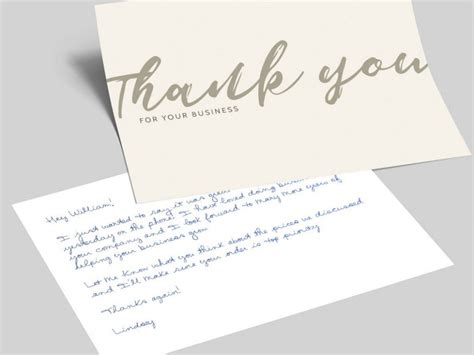 Thank you
FOR YOUR BUSINESS
Hey William!
I just wanted to say it was
yesterday on the phone. I have loved doing
your company and I look forward to many more years of
helping your business
Let me know what you think about the prices we discussed
and I'll make sure your order is top priority
Thanks again!
Lindsay